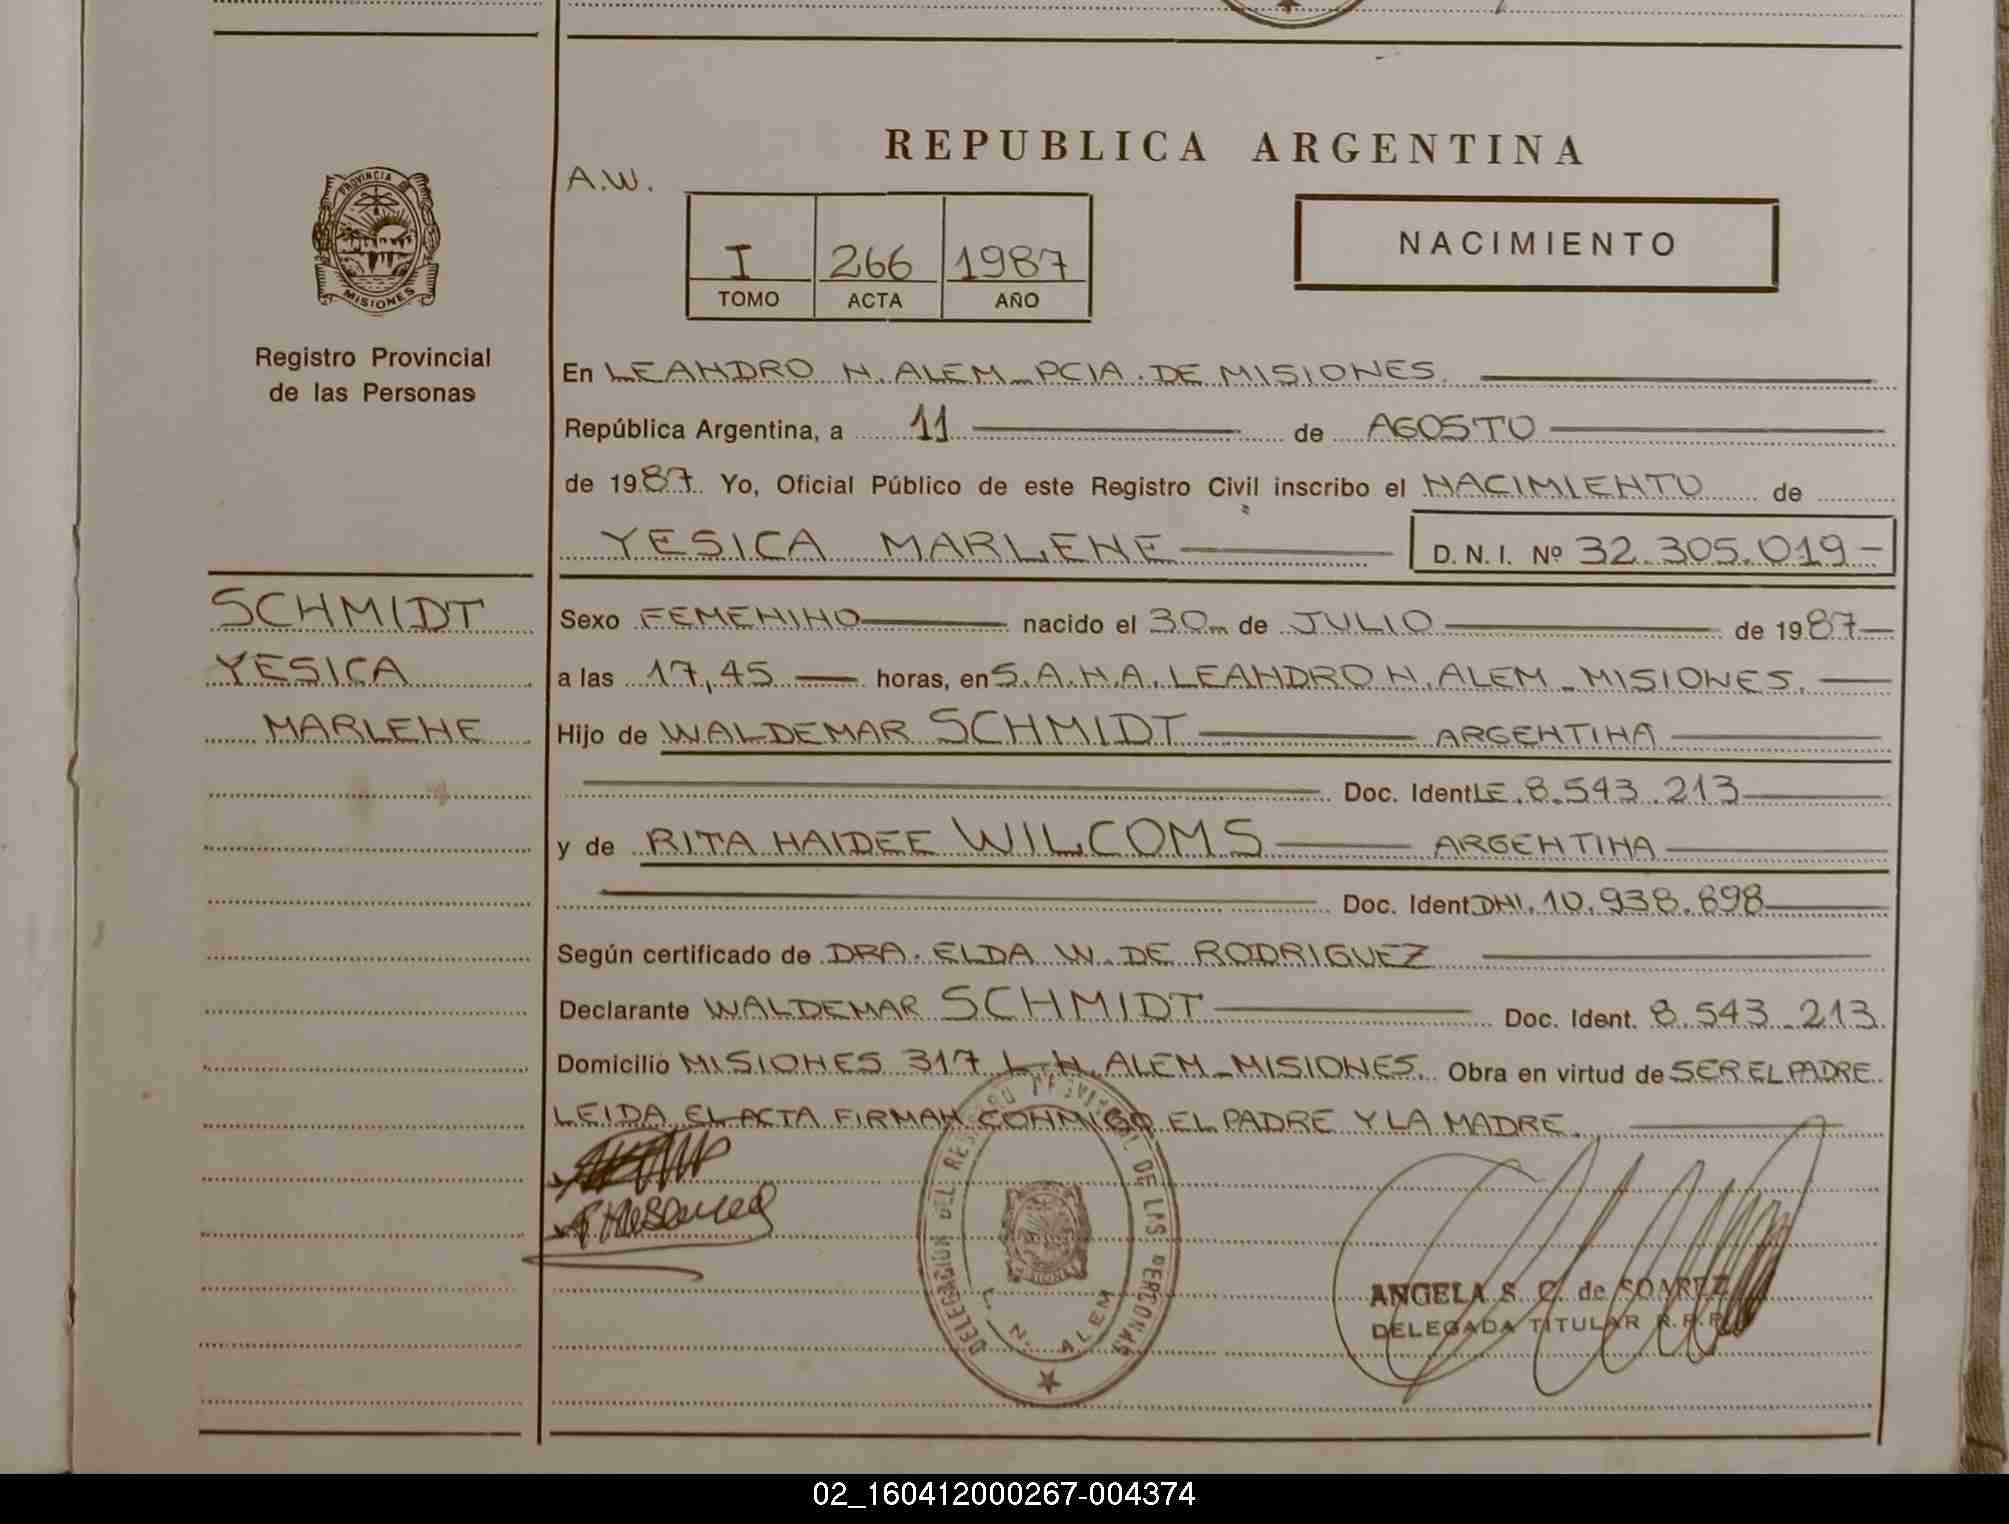 REPUBLICA ARGENTINA
A.W.
PROVINCIA DE
MISIONES
I 266 1987
TOMO ACTA AÑO
NACIMIENTO
Registro Provincial
de las Personas
En LEANDRO N. ALEM - PCIA. DE MISIONES.
República Argentina, a 11 de AGOSTO
de 1987. Yo, Oficial Público de este Registro Civil inscribo el NACIMIENTO de
YESICA MARLENE D.N.I. Nº 32.305.019-
SCHMIDT
YESICA
MARLENE
Sexo FEMENINO nacido el 30 de JULIO de 1987
a las 17,45 horas, en S.A.N.A. LEANDRO N. ALEM - MISIONES.
Hijo de WALDEMAR SCHMIDT ARGENTINA
Doc. Ident LE. 8.543.213
y de RITA HAIDEE WILCOMS ARGENTINA
Doc. Ident DNI. 10.938.898
Según certificado de DRA. ELDA W. DE RODRIGUEZ
Declarante WALDEMAR SCHMIDT Doc. Ident. 8.543.213
Domicilio MISIONES 317 L.N. ALEM - MISIONES. Obra en virtud de SER EL PADRE
LEIDA EL ACTA FIRMAN CONMIGO EL PADRE Y LA MADRE.
DELEGACION DEL REGISTRO PROVINCIAL DE LAS PERSONAS
L. N. ALEM
ANGELA S. C. de SOAREZ
DELEGADA TITULAR R.P.P.
02_160412000267-004374